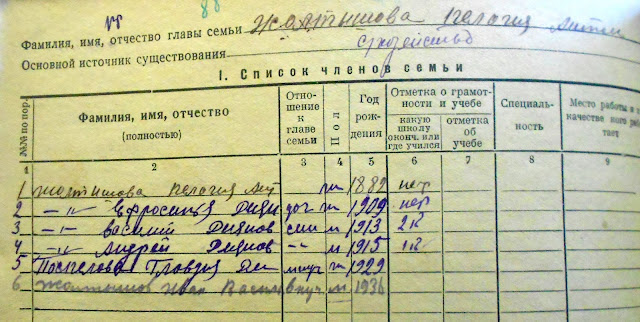 88
Фамилия, имя, отчество главы семьи Желтышова Пелогия Антип
Основной источник существования с/хозяйство
I. Список членов семьи
№№ по пор. Фамилия, имя, отчество (полностью) Отношение к главе семьи Пол Год рождения Отметка о грамотности и учебе Специальность Место работы в качестве кого работает
какую школу оконч. или где учился отметка об учебе
1 2 3 4 5 6 7 8 9
1 Желтышова Пелогия Ант ж 1882 нет
2 —"— Ефросиния доч ж 1909 нет
3 —"— Василий сын м 1913 2к
4 —"— Андрей —"— м 1915 1к
5 Поспелова ж 1929
6 Желтышов Иван Васил внук м 1936